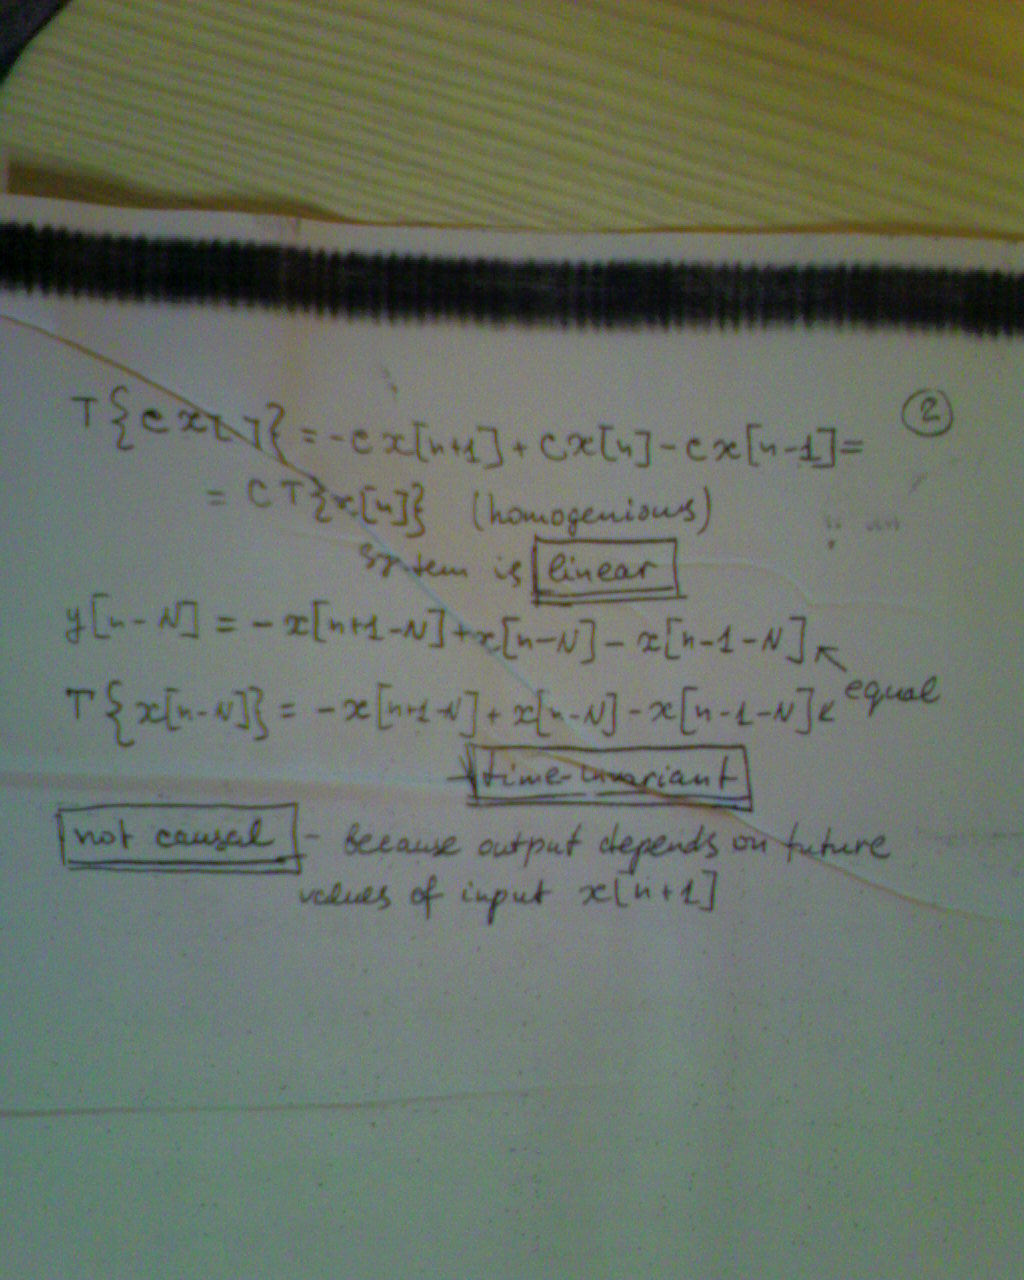 ②
T{cx[ ]} = -cx[n+1] + cx[n] - cx[n-1] =
= cT{x[n]} (homogenious)
system is linear
y[n-N] = -x[n+1-N] + x[n-N] - x[n-1-N]
equal
T{x[n-N]} = -x[n+1-N] + x[n-N] - x[n-1-N]
time-invariant
not causal - because output depends on future
values of input x[n+1]